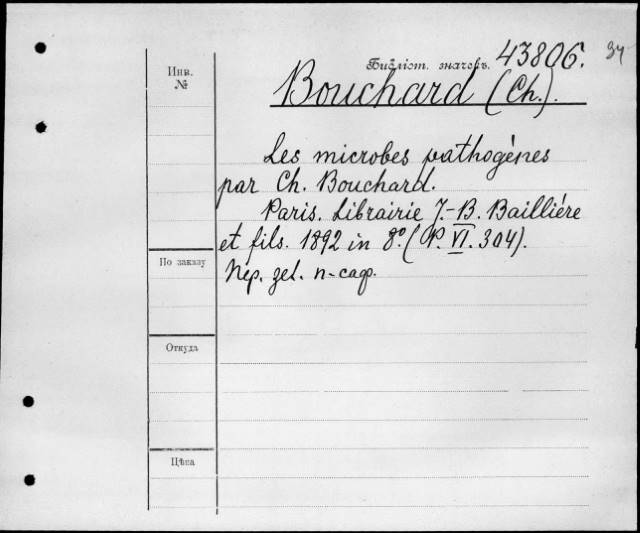 Инв. №
Библіот. значекъ. 43806. 34
Bouchard (Ch.).
Les microbes pathogènes
par Ch. Bouchard.
Paris. Librairie J.-B. Baillière
et fils. 1892 in 8º. (P. VI. 304).
По заказу
Откуда
Цѣна